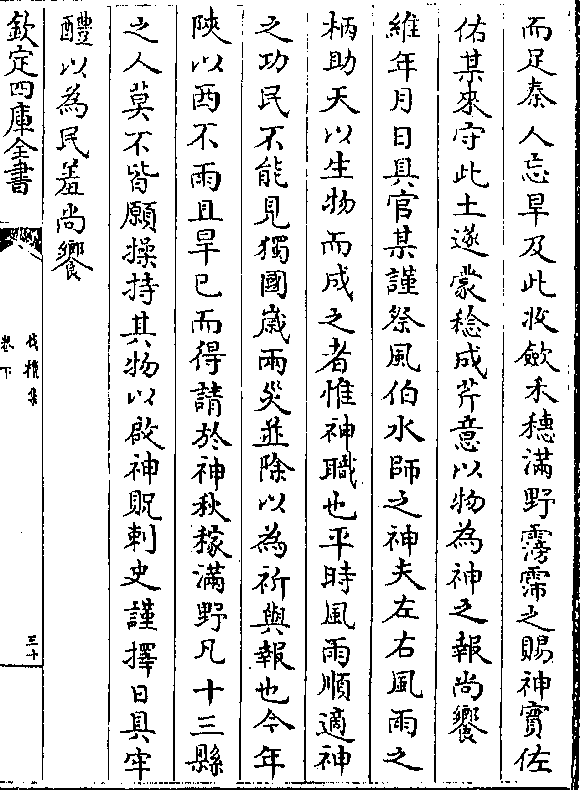 而足秦人忘旱及此收斂禾穗滿野霶霈之賜神實佐
佑某來守此土遂蒙稔成芹意以物為神之報尚饗
維年月日具官某謹祭風伯水師之神夫左右風雨之
柄助天以生物而成之者惟神職也平時風雨順適神
之功民不能見獨國崴兩災並除以為祈與報也今年
陜以西不雨且旱已而得請於神秋稼滿野凡十三縣
之人莫不皆願操持其物以啟神貺刺史謹擇日具牢
醴以為民羞尚饗
欽定四庫全書
伐檀集
卷下
三十